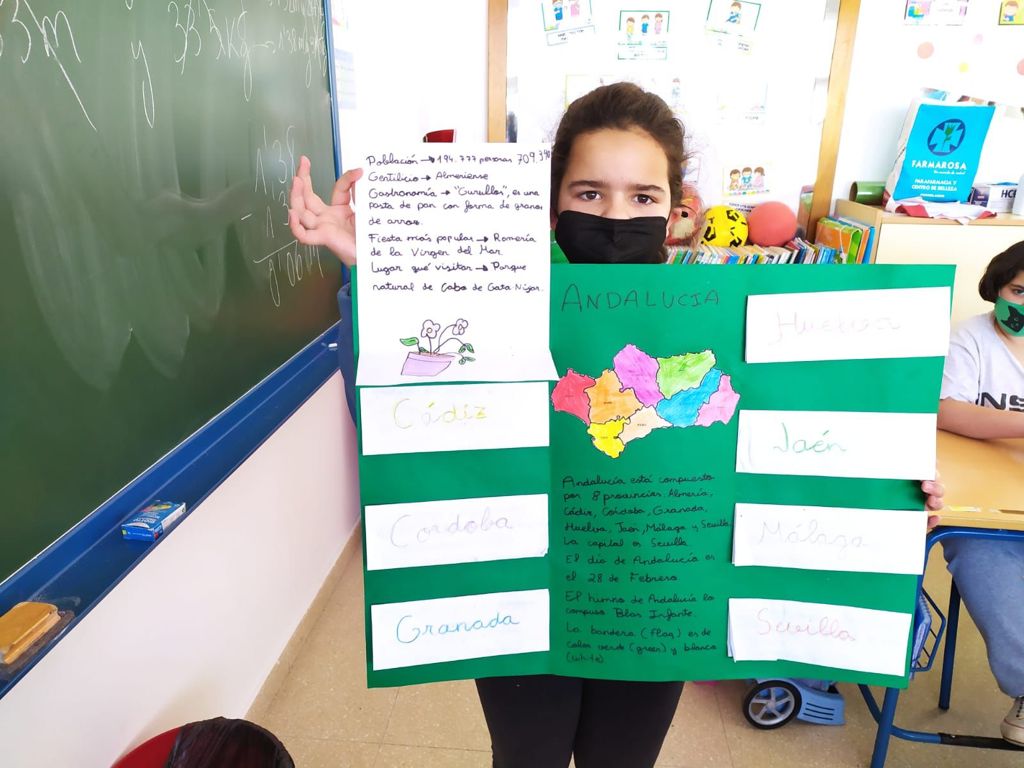 33m y 33'5kg
Población → 194.777 personas 709.340
Gentilicio → Almeriense
Gastronomía → "Gurullos", es una
pasta de pan con forma de granos
de arroz.
Fiesta más popular → Romería
de la Virgen del Mar
Lugar qué visitar → Parque
natural de Cabo de Gata Níjar.
Cádiz
Córdoba
Granada
ANDALUCIA
Andalucía está compuesta
por 8 provincias. Almería,
Cádiz, Córdoba, Granada,
Huelva, Jaen, Málaga y Sevilla.
La capital es Sevilla.
El día de Andalucía es
el 28 de Febrero
El himno de Andalucía lo
compuso Blas Infante.
La bandera (flag) es de
color verde (green) y blanco
(white).
Huelva
Jaén
Málaga
Sevilla
FARMAROSA
PARAFARMACIA Y
CENTRO DE BELLEZA